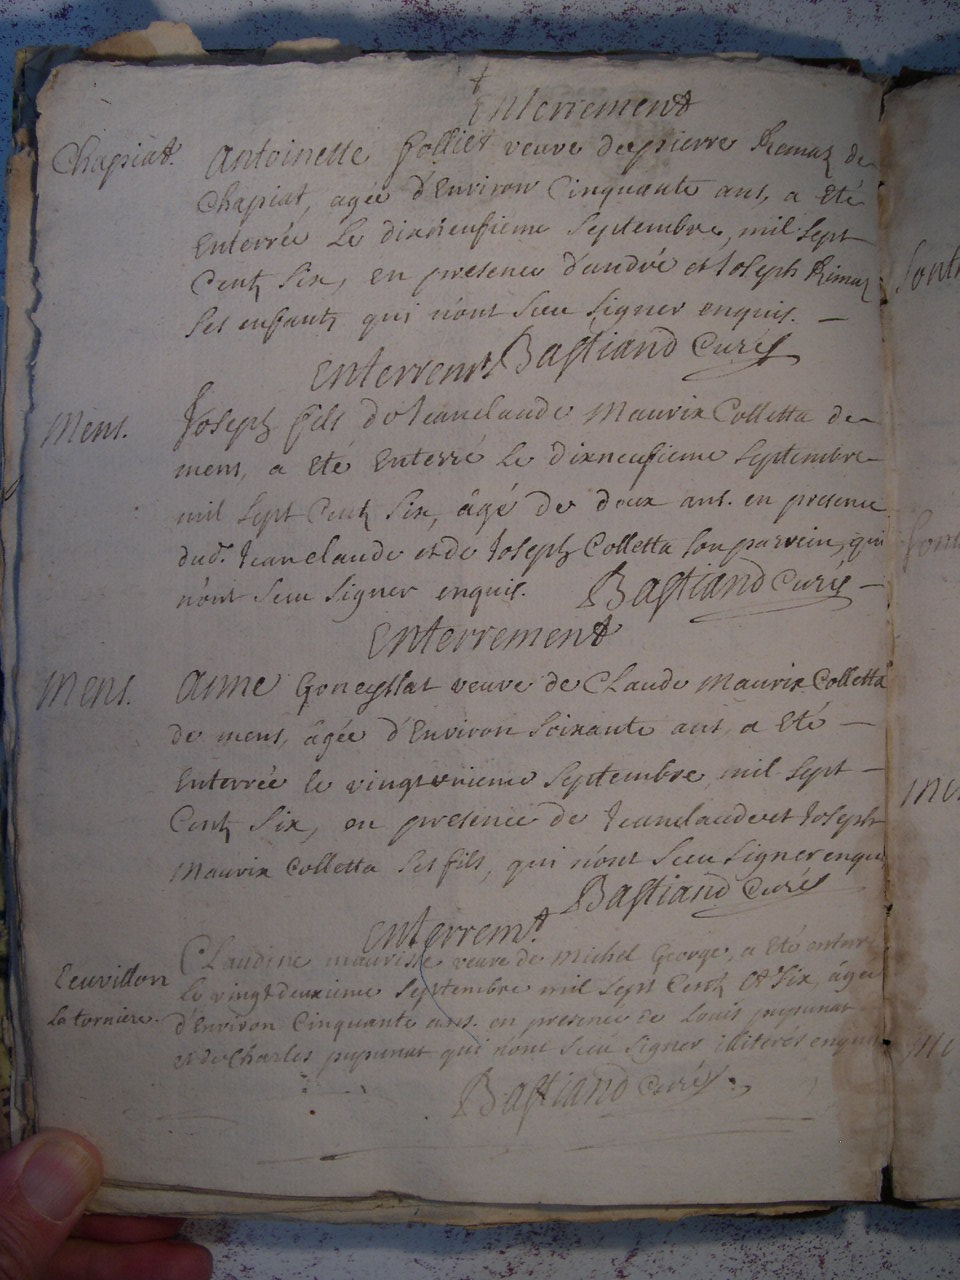 Enterrement
Chapiat. Antoinette follier veuve de pierre Remaz de
Chapiat, agée d'Environ Cinquante ans, a Eté
Enterrée Le dixneufieme Septembre, mil Sept
Centz Six, en presence d'andré et Joseph Rimaz
Ses enfantz qui n'ont Sceu Signer enquis. —
Enterremt Bastiand Curé
Mens. Joseph fils de Jeanclaude Maurix Colletta de
mens, a Eté Enterré Le dixneufieme Septembre
mil Sept Centz Six, âgé de deux ans. en presence
dudt. Jeanclaude et de Joseph Colletta Son parrein, qui
n'ont Sceu Signer enquis. Bastiand Curé —
Enterrement
Mens. Anne veuve de Claude Maurix Colletta
de mens, âgée d'Environ Soixante ans, a Eté —
Enterrée le vingtvnieme Septembre, mil Sept —
Centz Six, en presence de Jeanclaude et Joseph
Maurix Colletta Ses fils, qui n'ont Sceu Signer enqu
Bastiand Curé
Enterremt.
Claudine mauris veuve de Michel George, a Eté enterr
Le vingtdeuxieme Septembre mil Sept Centz & Six, âgée
La torniere. d'Environ Cinquante ans. en presence de Louis pupunat
et de Charles pupunat qui n'ont Sceu Signer, illiterés enquis
Bastiand Curé